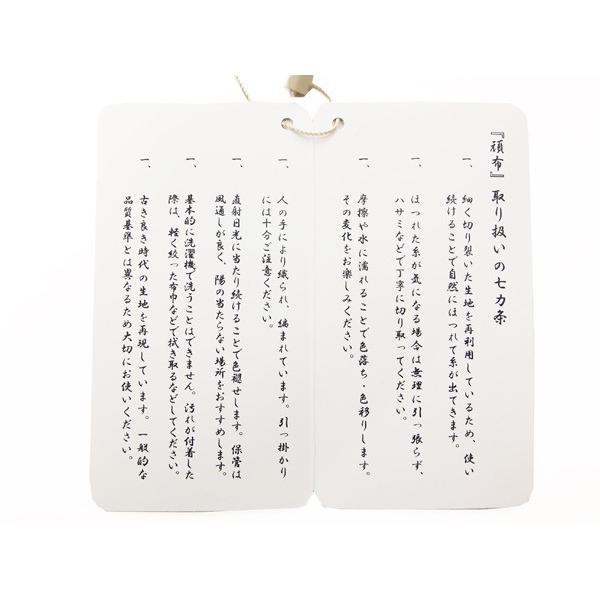 『頑布』取り扱いの七カ条
一、細く切り裂いた生地を再利用しているため、使い
続けることで自然にほつれて糸が出てきます。
一、ほつれた糸が気になる場合は無理に引っ張らず、
ハサミなどで丁寧に切り取ってください。
一、摩擦や水に濡れることで色落ち・色移りします。
その変化をお楽しみください。
一、人の手により織られ、編まれています。引っ掛かり
には十分ご注意ください。
一、直射日光に当たり続けることで色褪せします。保管は
風通しが良く、陽の当たらない場所をおすすめします。
一、基本的に洗濯機で洗うことはできません。汚れが付着した
際は、軽く絞った布巾などで拭き取るなどしてください。
一、古き良き時代の生地を再現しています。一般的な
品質基準とは異なるため大切にお使いください。